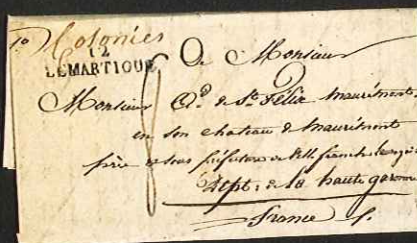 Colonies
12
LEMARTIQUE
A Monsieur
Monsieur Ad. de St. Félix Maurémont
en son chateau de Maurémont
près
dépt: de la haute garonne
France